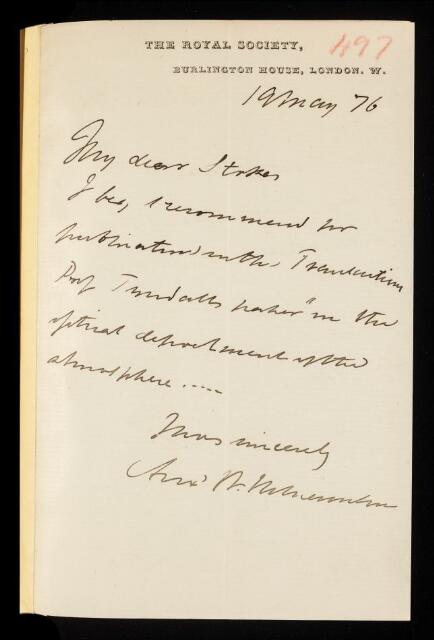 THE ROYAL SOCIETY,
497
BURLINGTON HOUSE, LONDON. W.
19 May 76
My dear Stokes
I beg to recommend for
publication in the Transactions
Prof Tyndalls paper "on the
optical deportment of the
atmosphere.....
Yours sincerely
Alexr W. Williamson